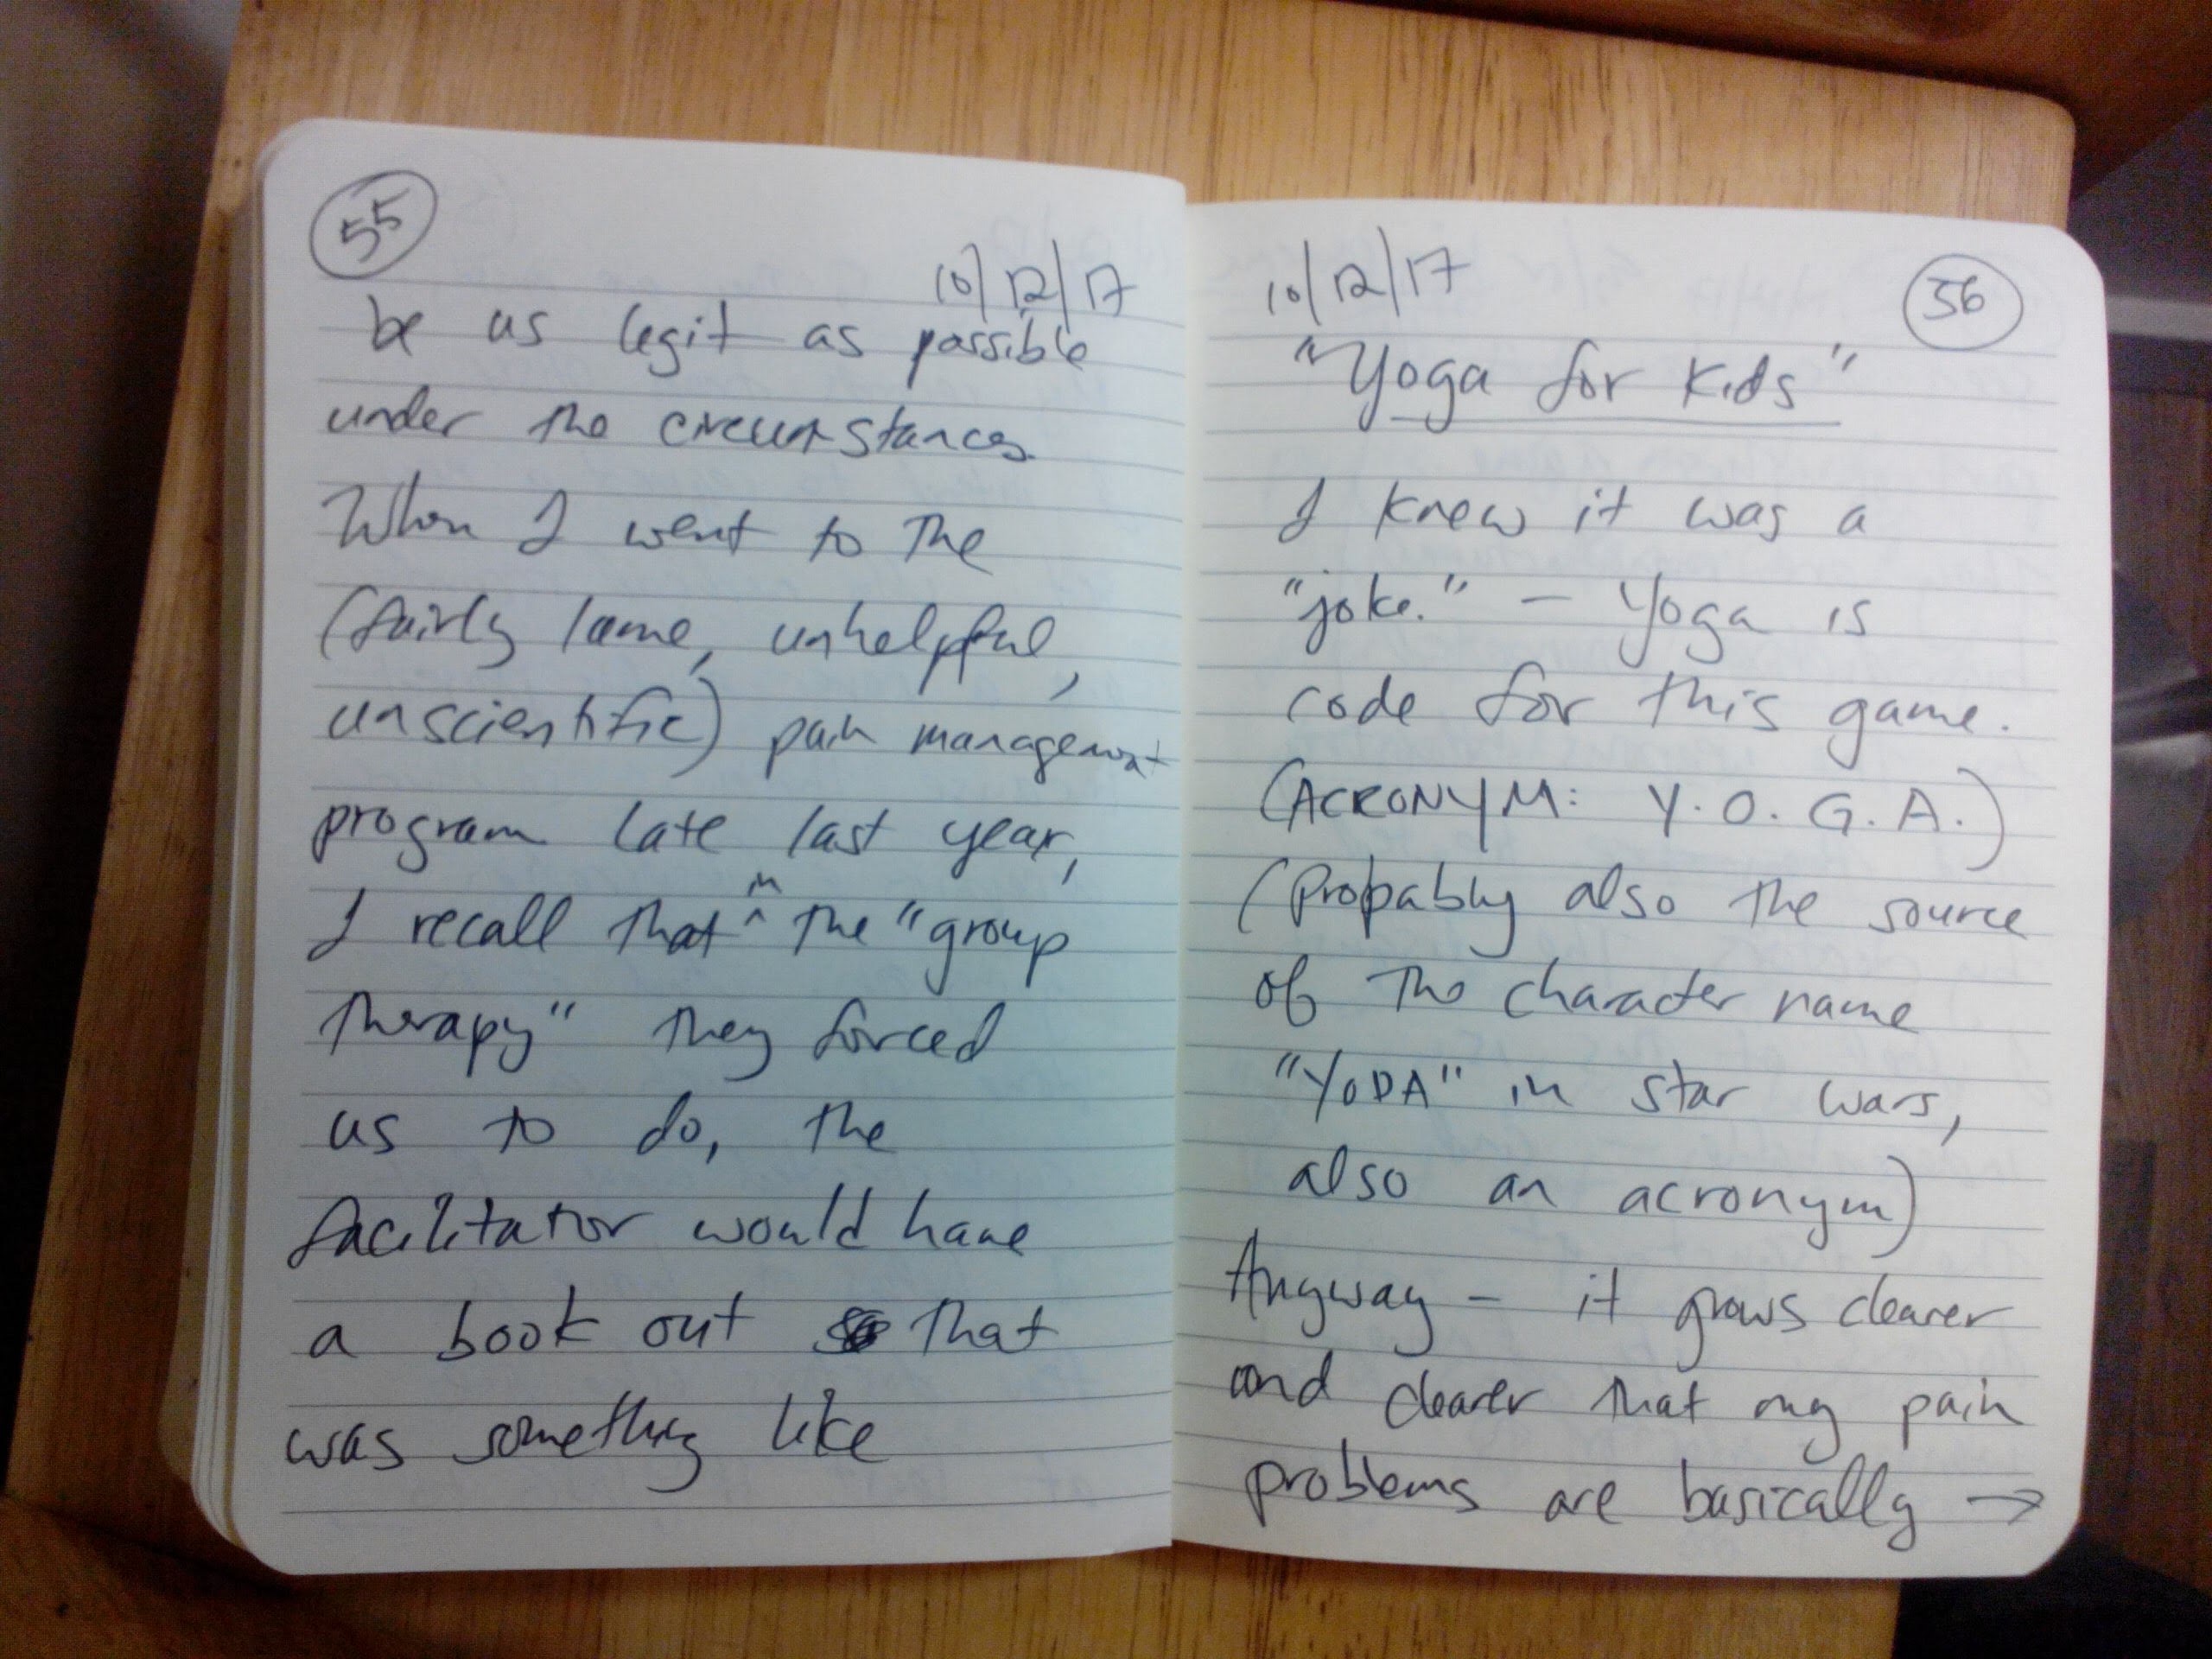 55
10/12/17
be as legit as possible
under the circumstances.
When I went to the
(fairly lame, unhelpful,
unscientific) pain management
program late last year,
I recall that ^in the "group
therapy" they forced
us to do, the
facilitator would have
a book out that
was something like
10/12/17
56
"Yoga for Kids"
I knew it was a
"joke." – Yoga is
code for this game.
(ACRONYM: Y.O.G.A.)
(Probably also the source
of the character name
"YODA" in star wars,
also an acronym)
Anyway – it grows clearer
and clearer that my pain
problems are basically →